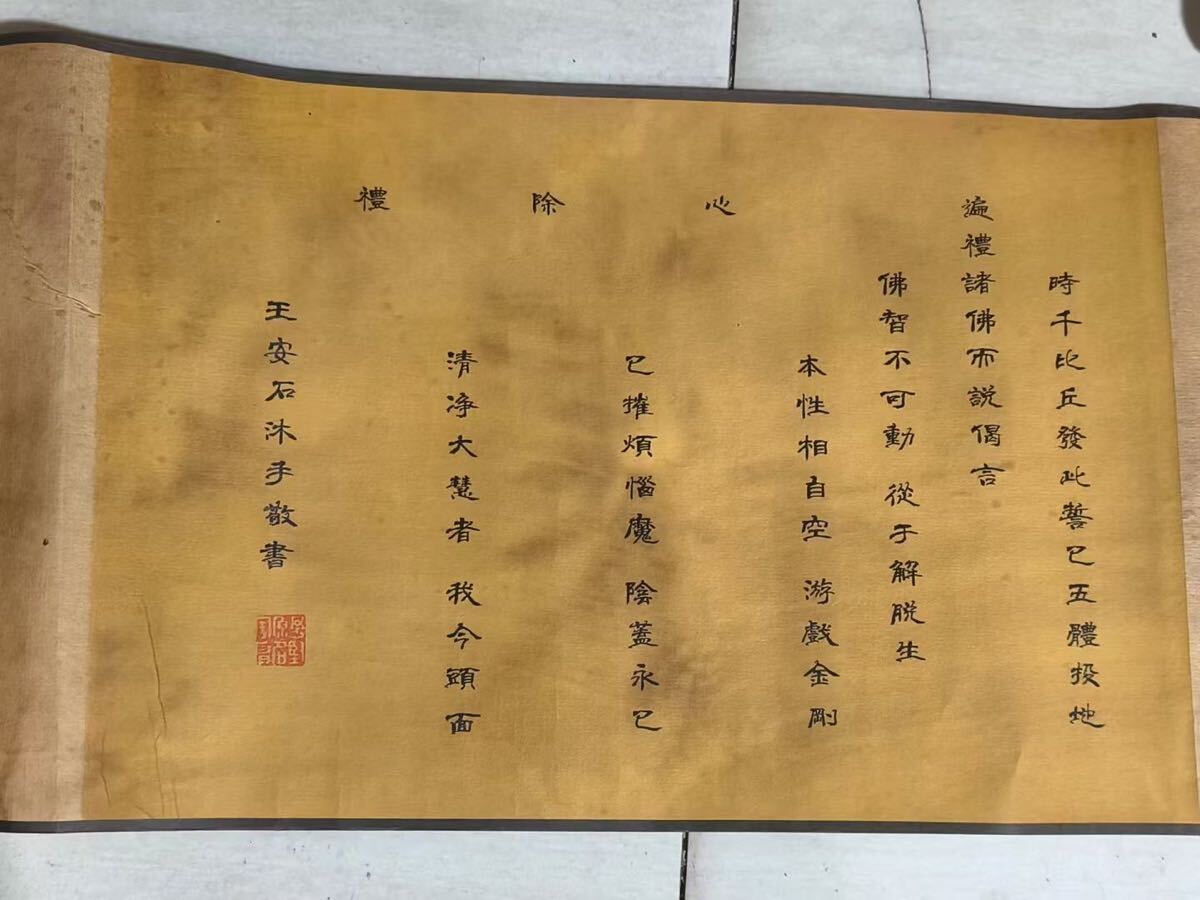 時千比丘發此誓已五體投地
遍禮諸佛而說偈言
佛智不可動 從于解脫生
本性相自空 游戲金剛
心
已摧煩惱魔 陰蓋永已
除
清淨大慧者 我今頭面
禮
王安石沐手敬書